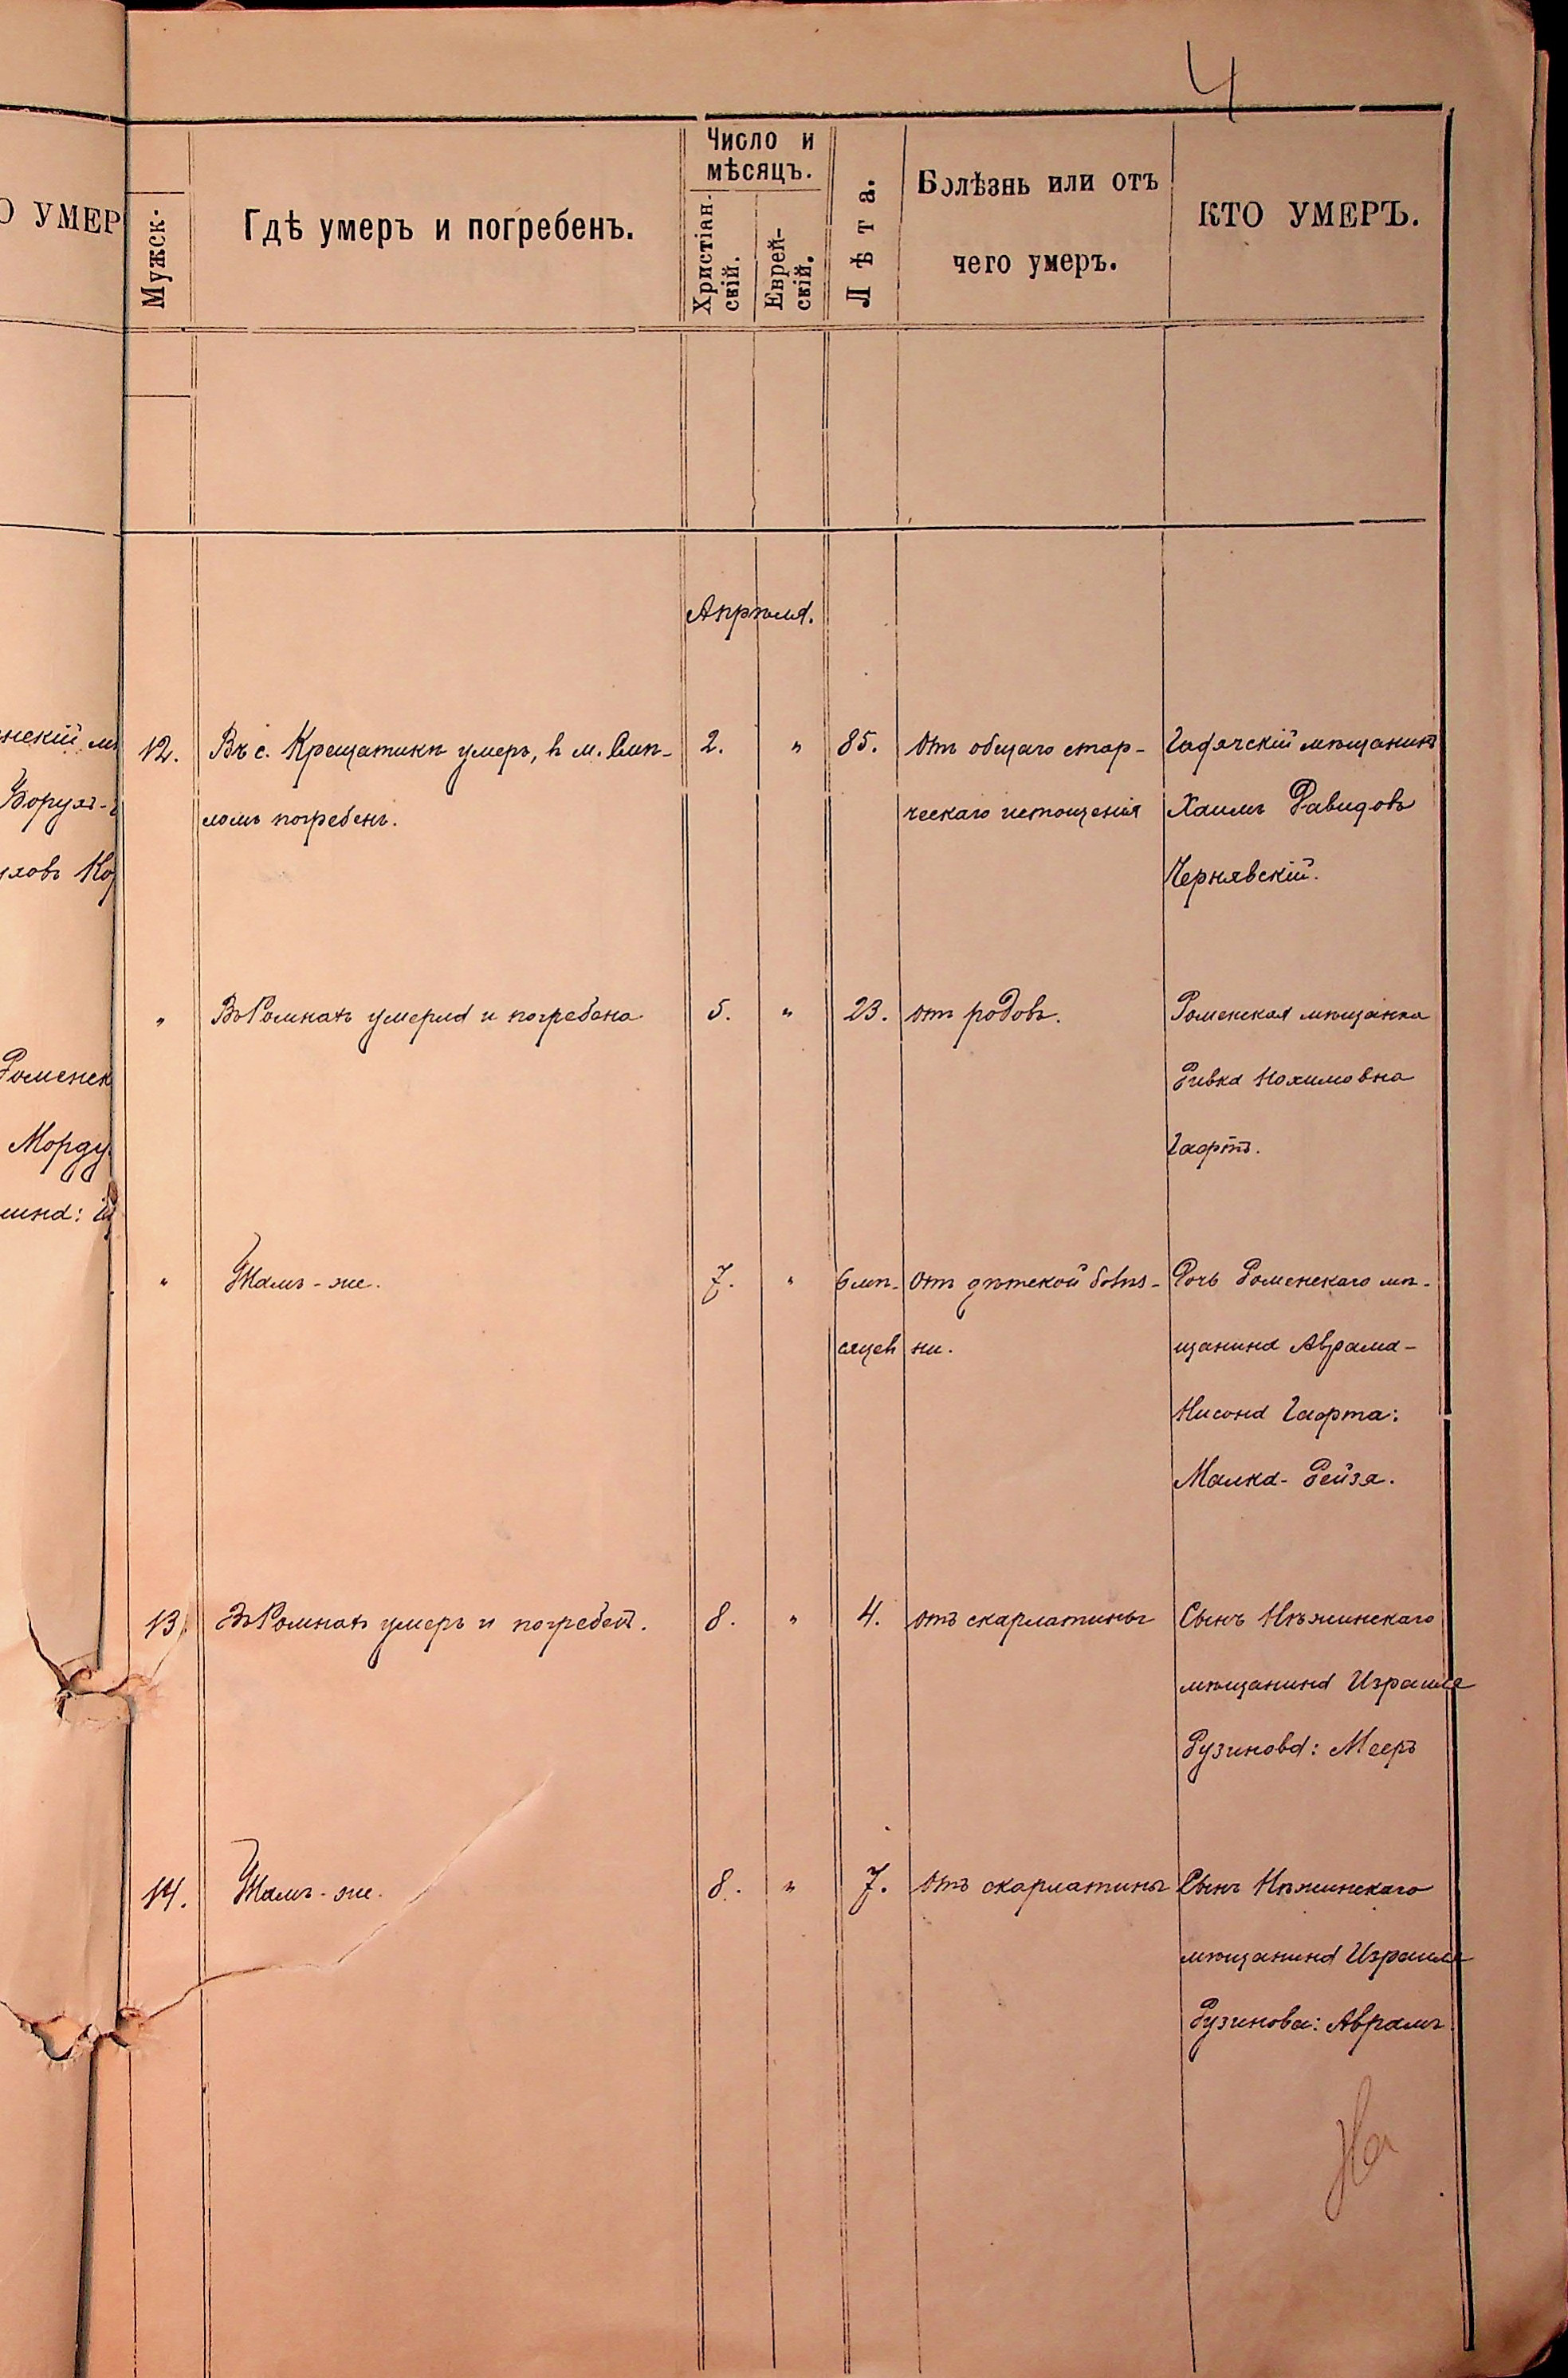 4
О УМЕР
Мужск.
Гдѣ умеръ и погребенъ.
Число и
мѣсяцъ.
Христіан-
скій.
Еврей-
скій.
Лѣта.
Болѣзнь или отъ
чего умеръ.
КТО УМЕРЪ.
Апрѣля.
нскій
Борухъ-
Роменск
Морду
12.
Въ с. Крещатикѣ умеръ, в м.
ломъ погребенъ.
2.
"
85.
Отъ общаго стар-
ческаго истощенія
Гадячскій мѣщанинъ
Хаимъ Давидовъ
Чернявскій.
"
Въ Ромнахъ умерла и погребена
5.
"
23.
отъ родовъ.
Роменская мѣщанка
Ривка Нохимовна
Гафтъ.
"
Тамъ-же.
7.
"
6 мѣ-
сяцев
Отъ дѣтской болѣз-
ни.
Дочь Роменскаго мѣ-
щанина Аврама-
Нисона Гафта:
Малка-Рейза.
13.
Въ Ромнахъ умеръ и погребенъ.
8.
"
4.
отъ скарлатины
Сынъ Нѣжинскаго
мѣщанина Израиля
Рузинова: Мееръ
14.
Тамъ-же.
8.
"
7.
Отъ скарлатины
Сынъ Нѣжинскаго
мѣщанина Израиля
Рузинова: Аврамъ